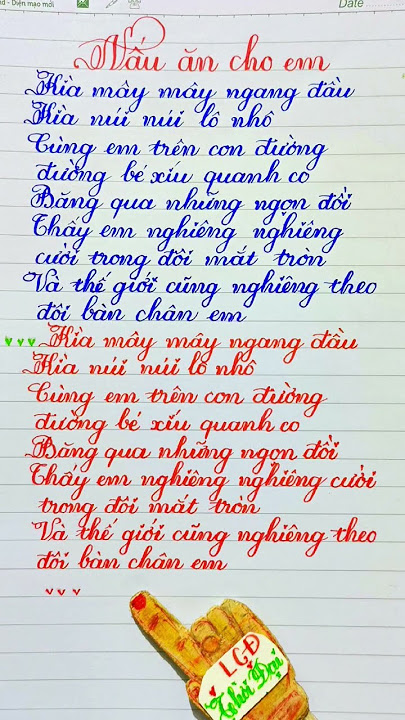 ad - Diện mạo mới
Date
Nấu ăn cho em
Kìa mây mây ngang đầu
Kìa núi núi lô nhô
Cùng em trên con đường
đường bé xíu quanh co
Băng qua những ngọn đồi
Thấy em nghiêng nghiêng
cười trong đôi mắt tròn
Và thế giới cũng nghiêng theo
đôi bàn chân em
Kìa mây mây ngang đầu
Kìa núi núi lô nhô
Cùng em trên con đường
đường bé xíu quanh co
Băng qua những ngọn đồi
Thấy em nghiêng nghiêng cười
trong đôi mắt tròn
Và thế giới cũng nghiêng theo
đôi bàn chân em
LGĐ
Thời Đại